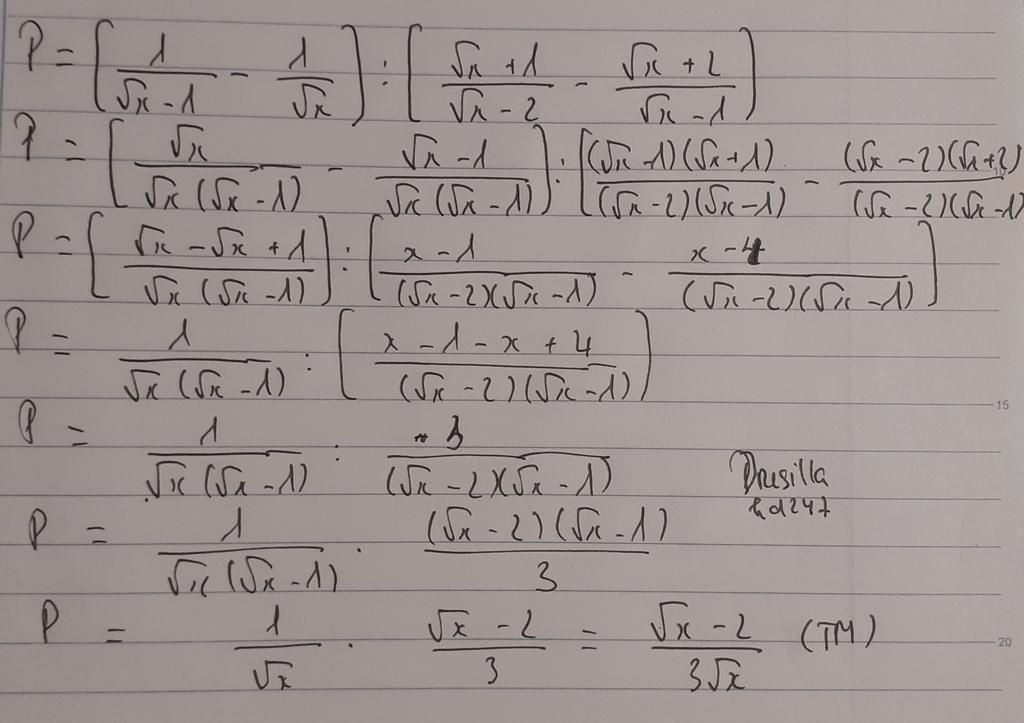 P = [1/(√x - 1) - 1/√x] : [(√x + 1)/(√x - 2) - (√x + 2)/(√x - 1)]
P = [√x/(√x (√x - 1)) - (√x - 1)/(√x (√x - 1))] : [(√x - 1)(√x + 1)/((√x - 2)(√x - 1)) - (√x - 2)(√x + 2)/((√x - 2)(√x - 1)
P = [(√x - √x + 1)/(√x (√x - 1))] : [(x - 1)/((√x - 2)(√x - 1)) - (x - 4)/((√x - 2)(√x - 1))]
P = 1/(√x (√x - 1)) : [(x - 1 - x + 4)/((√x - 2)(√x - 1))]
15
P = 1/(√x (√x - 1)) : 3/((√x - 2)(√x - 1))
Drusilla
hd247
P = 1/(√x (√x - 1)) . (√x - 2)(√x - 1)/3
P = 1/√x . (√x - 2)/3 = (√x - 2)/(3√x) (TM)
20